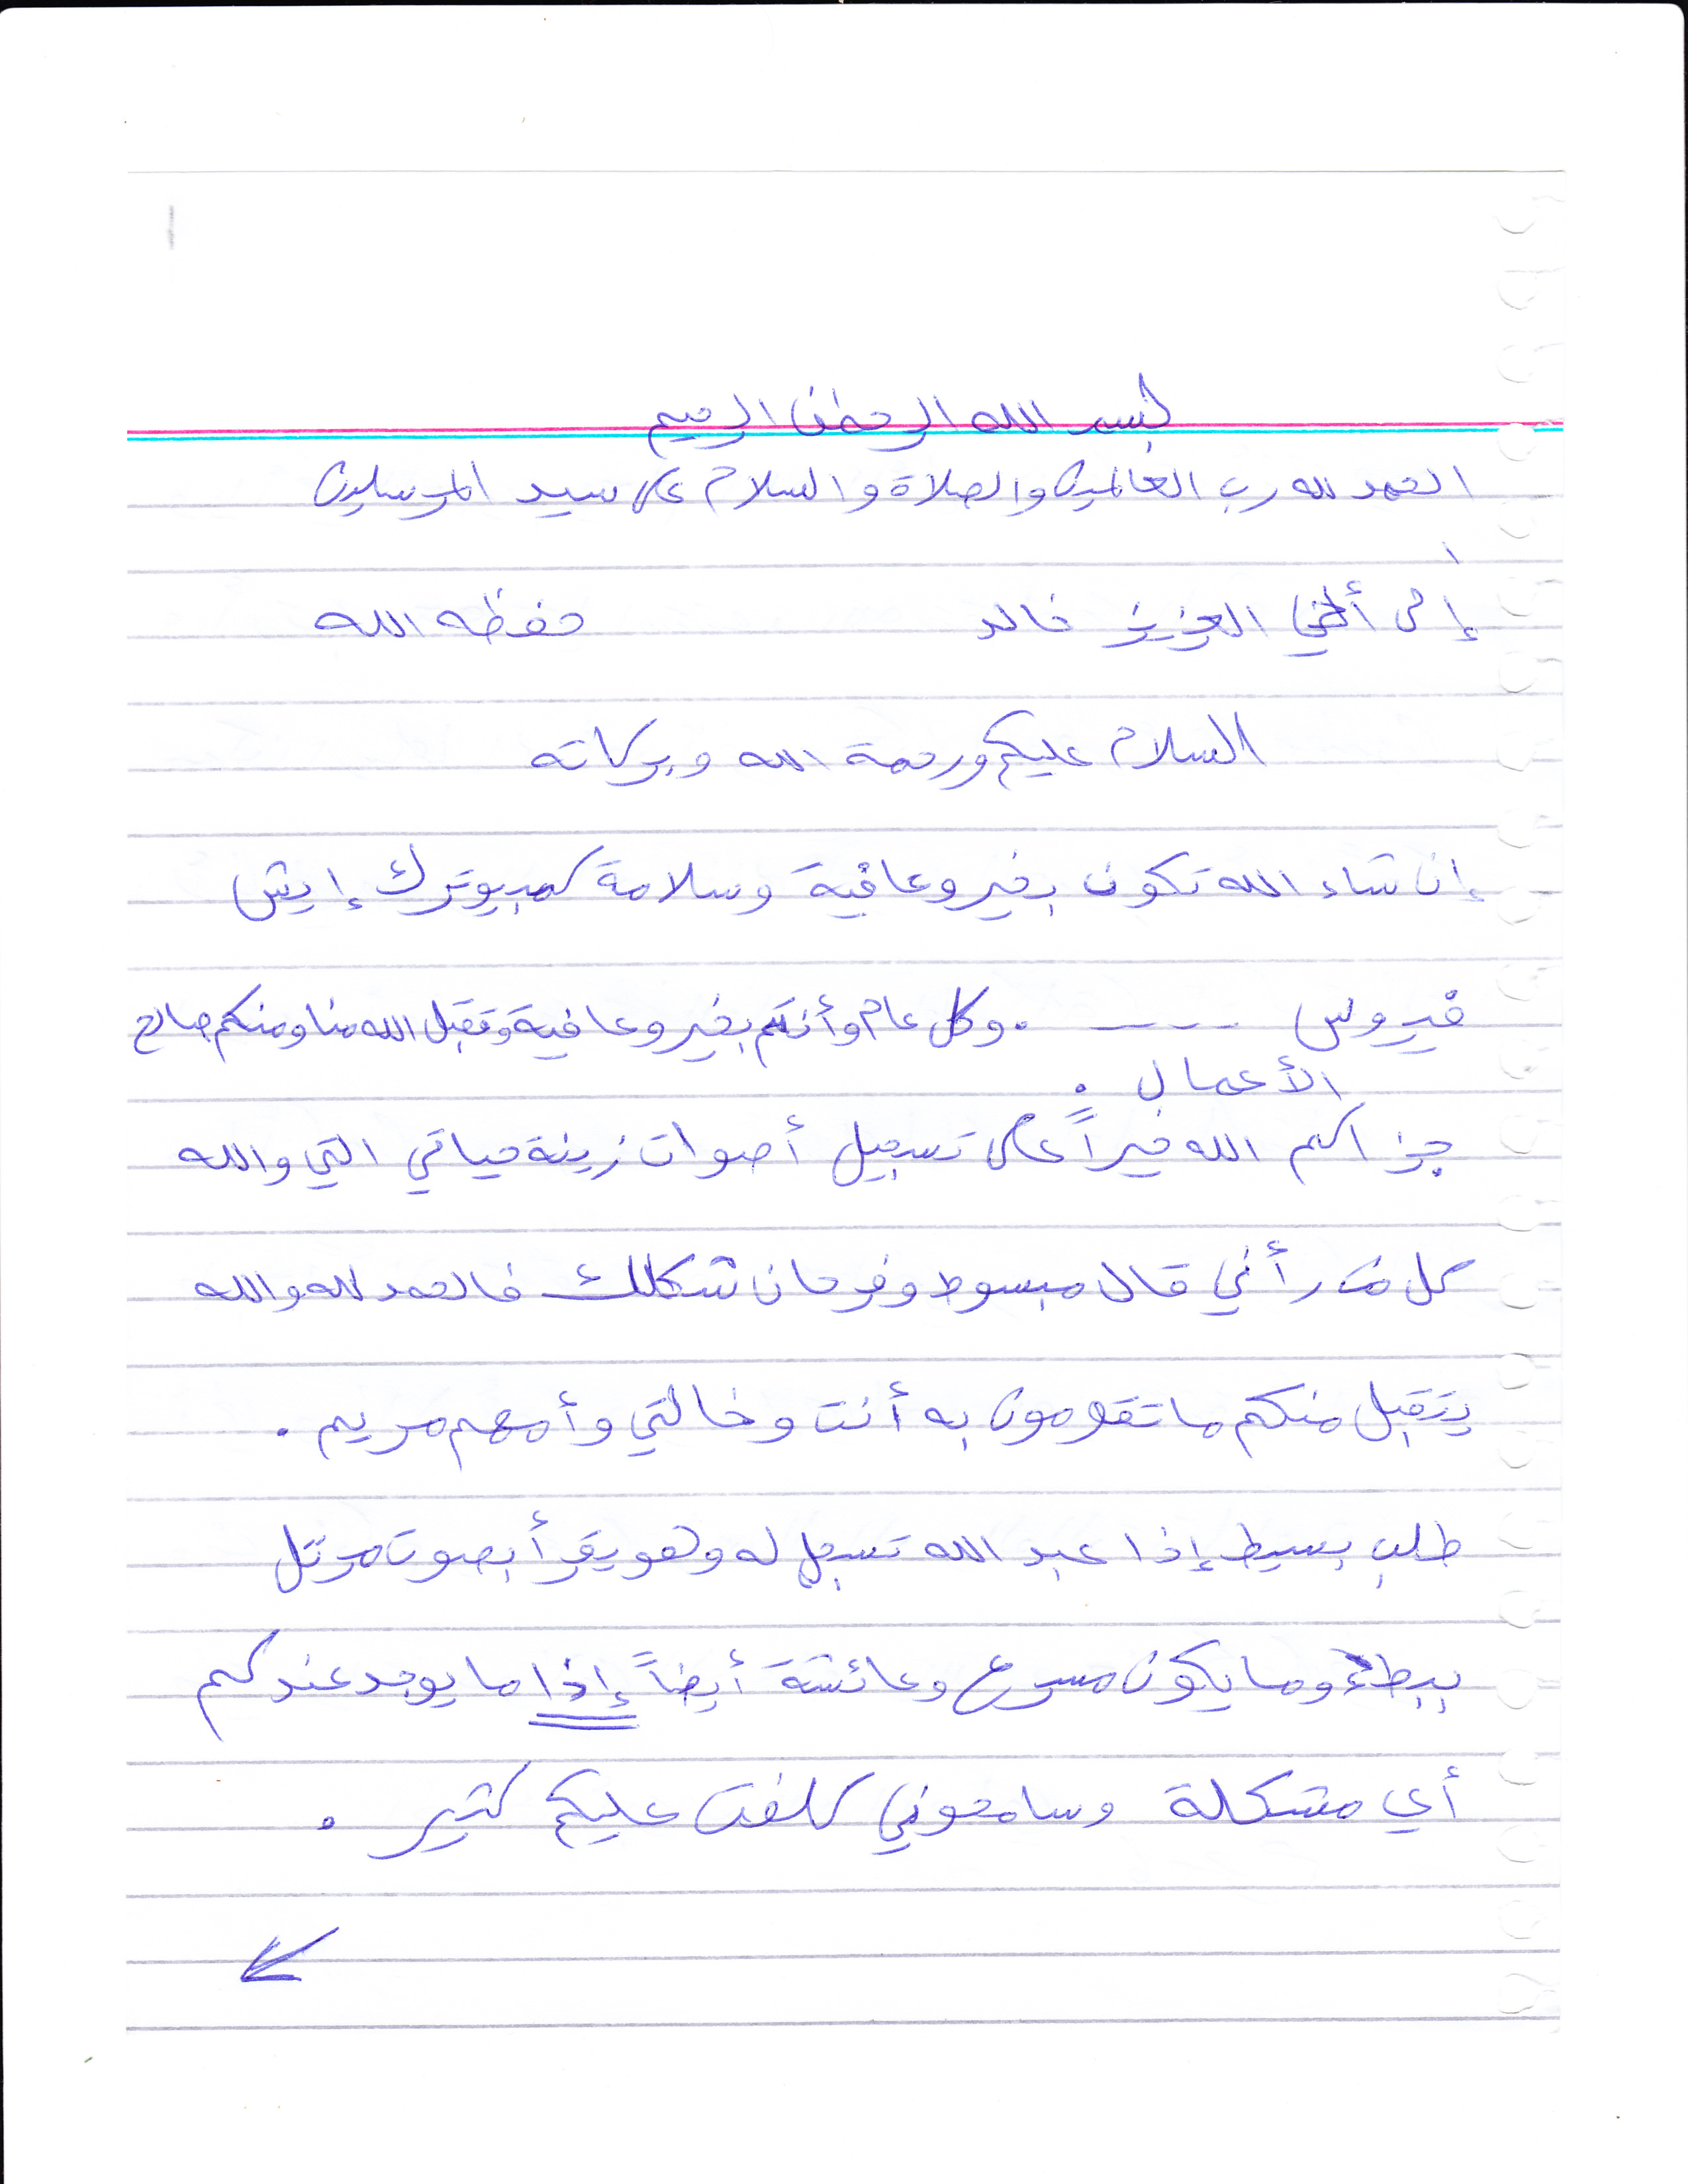 بسم الله الرحمن الرحيم
الحمد لله رب العالمين والصلاة والسلام على سيد المرسلين
إلى أخي العزيز خالد حفظه الله
السلام عليكم ورحمة الله وبركاته
إن شاء الله تكون بخير وعافية وسلامة كمبيوترك إيش
فيروس ---- . وكل عام وأنتم بخير وعافية وتقبل الله منا ومنكم صالح
الأعمال .
جزاكم الله خيراً على تسجيل أصوات زينة حياتي التي والله
كل من رأني قال مبسوط وفرحان شكلك فالحمد لله والله
يتقبل منكم ما تقومون به أنت وخالتي وأمهم مريم .
طلب بسيط إذا عبد الله تسجل له وهو يقرأ بصوت مرتل
ببطء وما يكون مسرع وعائشة أيضاً إذا ما يوجد عندكم
أي مشكلة وسامحوني كلفت عليكم كثير .